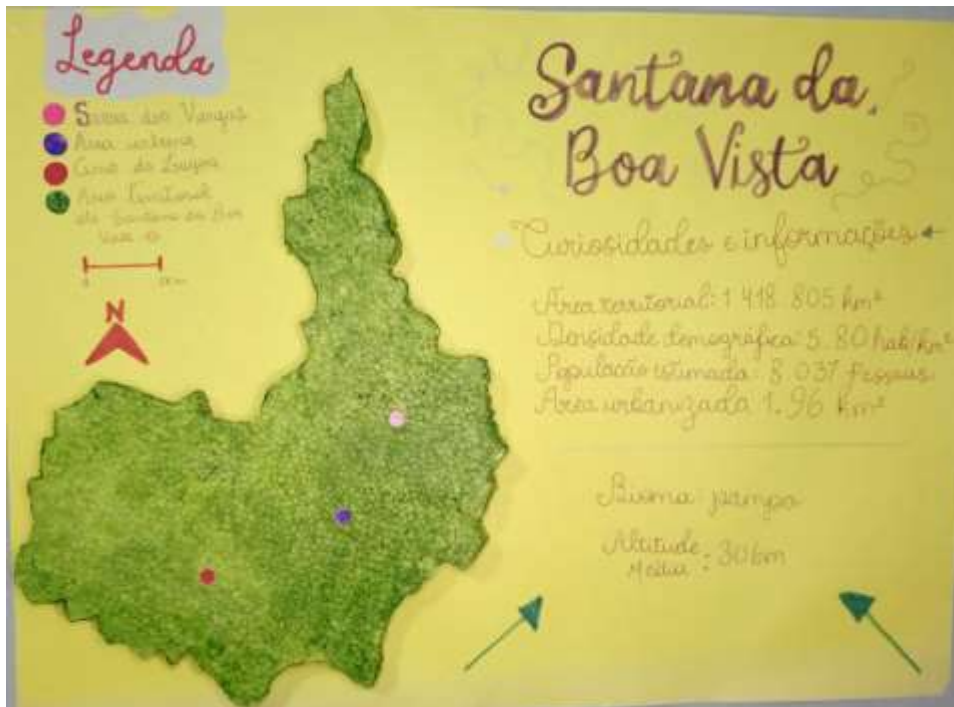 Legenda
Serra dos Vargas
Área urbana
Área Territorial
de Santana da Boa
Vista
0
N
Santana da
Boa Vista
Curiosidades e informações
Área territorial: 1 418 805 km²
Densidade demográfica: 5.80 hab/km²
População estimada: 8 037 Pessoas
Área urbanizada 1.96 km²
Bioma: pampa
Altitude
Média : 306m